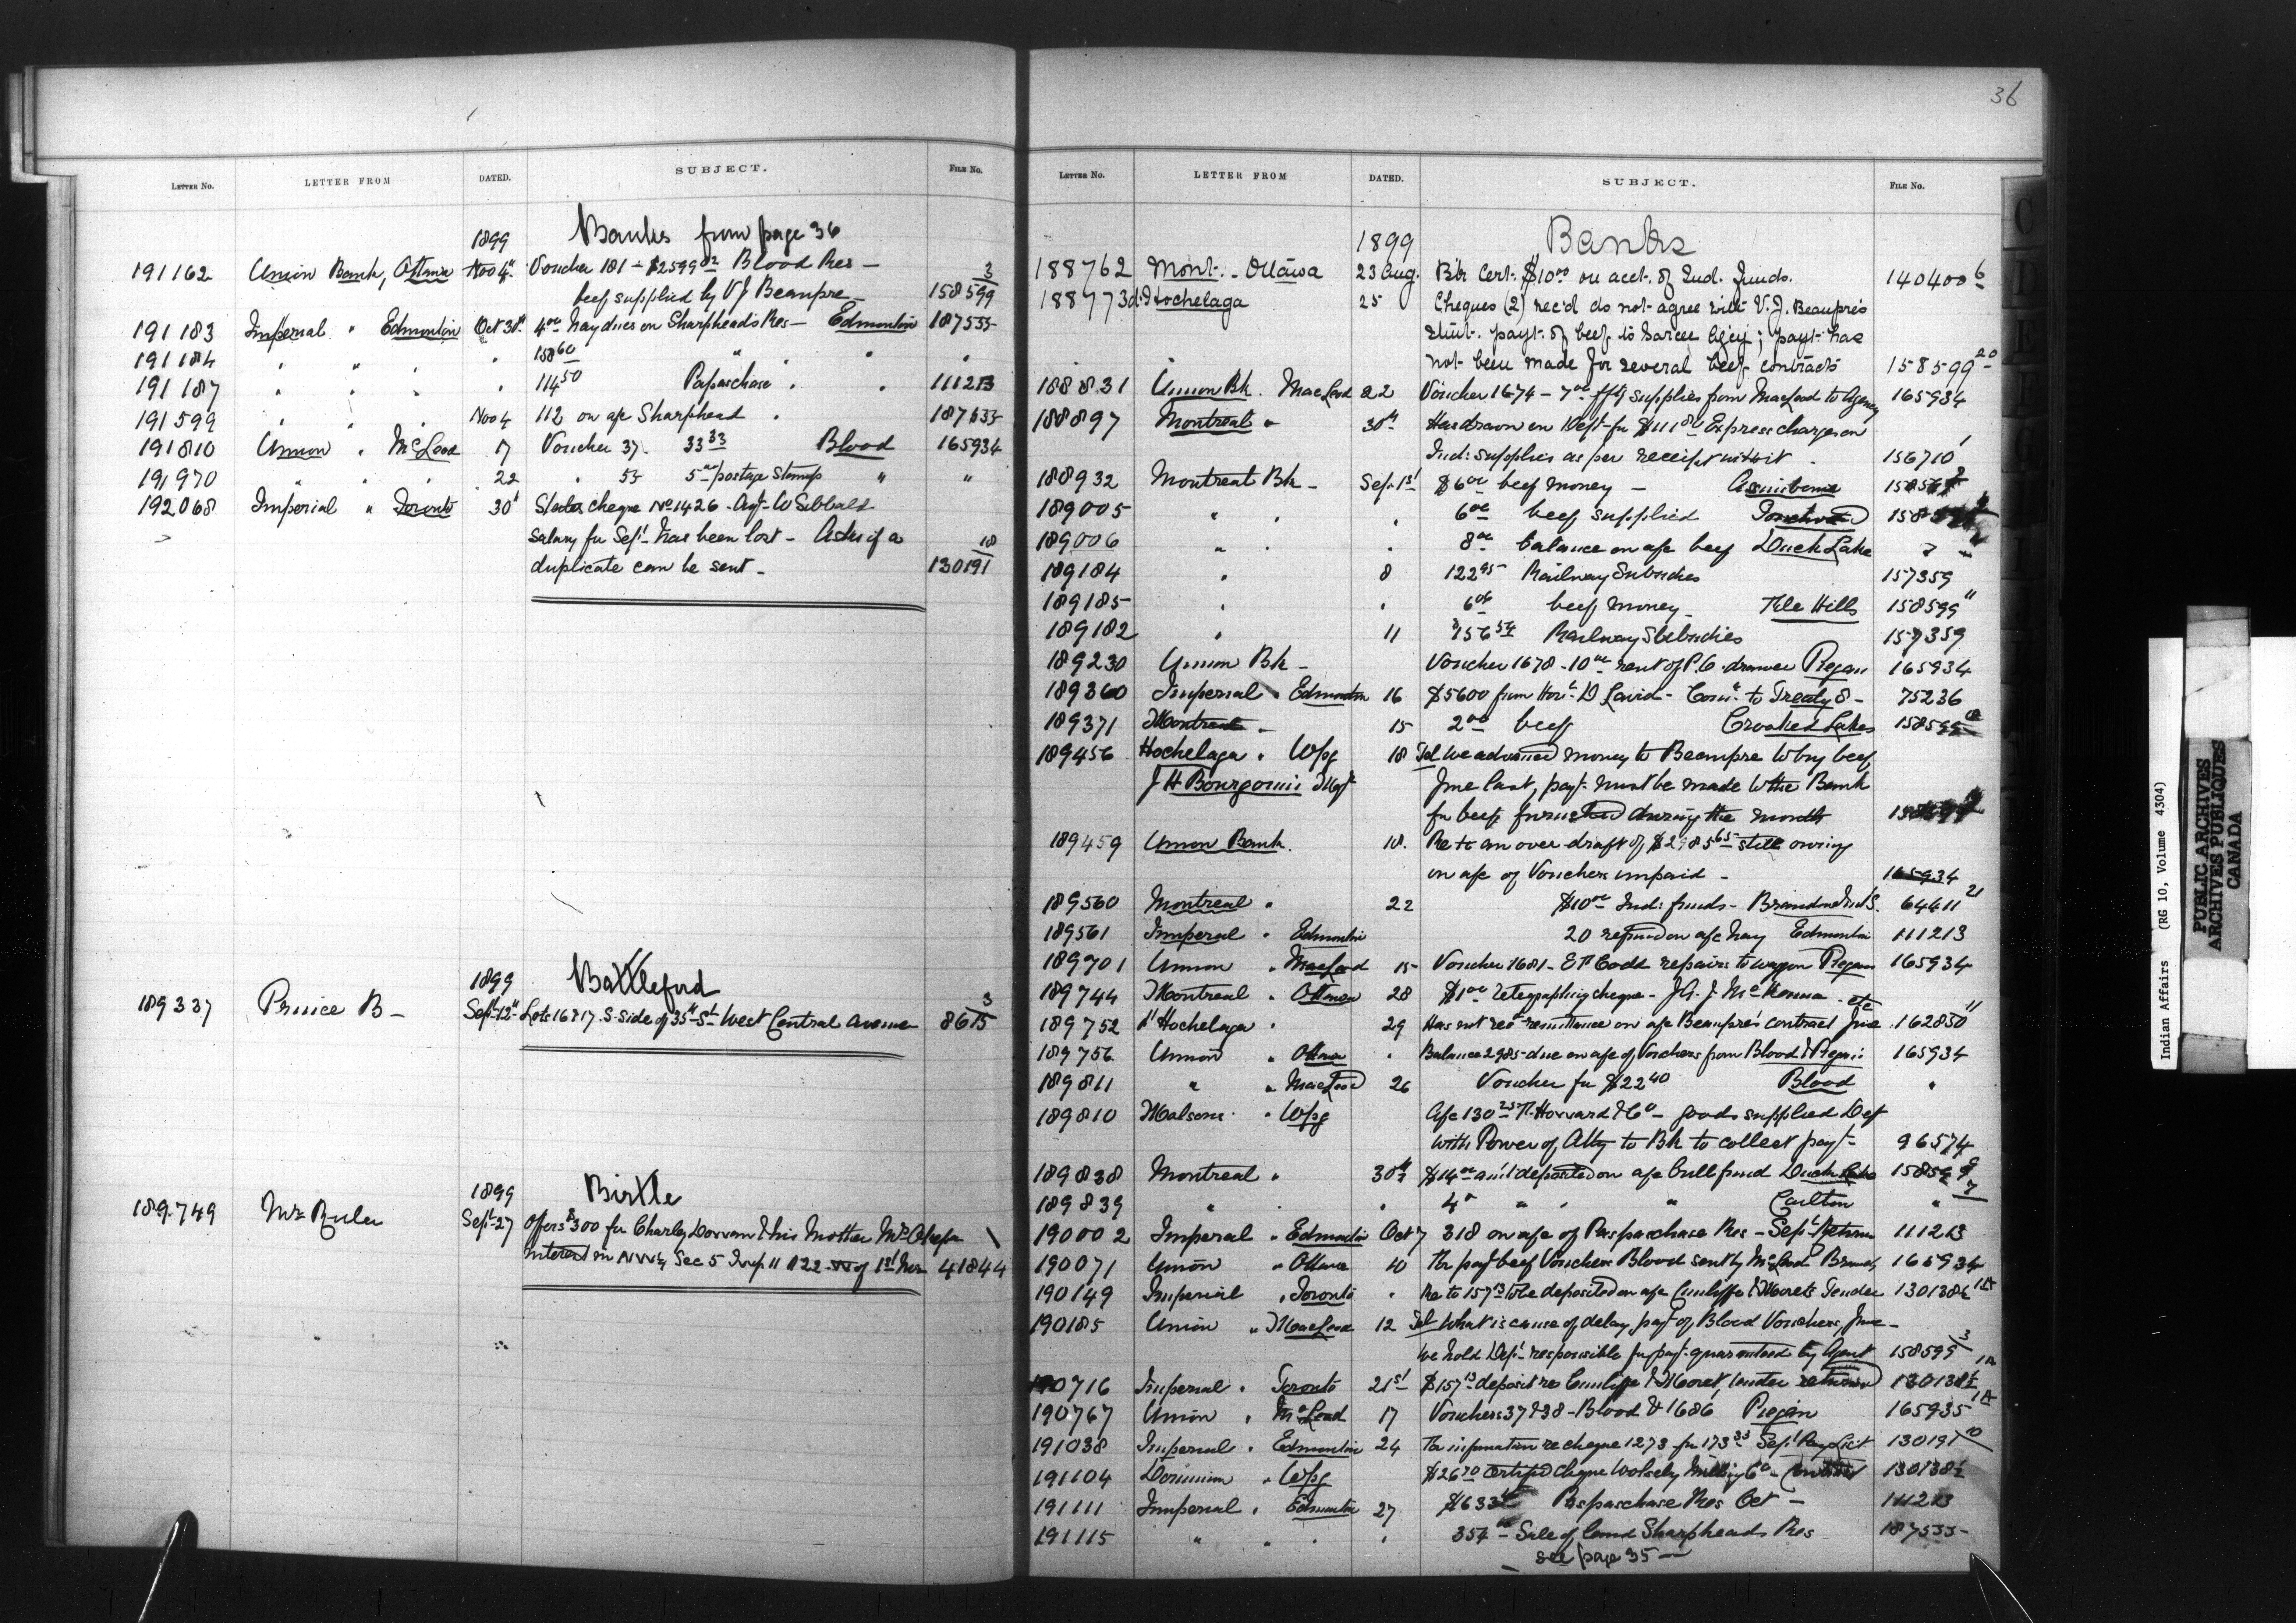 LETTER NO. LETTER FROM DATED. SUBJECT. FILE No.
1899 Banks from page 36
191162 Union Bank, Ottawa Nov 4" Voucher 181 - $2599 Blood Res - 3
beef supplied by V J Beaupre 158599
191183 Imperial " Edmonton Oct 30th 4 00 hay dues on Sharpheads Res - Edmonton 187535
191184 " " " " 158 60 " " " "
191187 " " " " 114 50 Papaschase " " 111213
191599 " " " Nov 4 112 on a/c Sharphead "
191810 Union " McLeod 17 Voucher 37. 33 33 Blood 165934
191970 " " " 22 " 53 5 00 postage stamps " "
192068 Imperial " Toronto 30 States cheque No 1426 - Agt W Sibbald
salary for Sept has been lost - Asks if a 18
duplicate can be sent - 130191
1899 Battleford
189337 Prince B - Sept 12" Lots 16 & 17 S. side of 35th St West Central Avenue 3
8615
1899 Birtle
189749 Sept 27 Offers $300 for Charley & his Mother
interest in Sec 5 Twp 11 R22 W of 1st Mer 41844
36
LETTER No. LETTER FROM DATED. SUBJECT. FILE No.
1899 Banks
188762 Mont. - Ottawa 23 Aug. Bk Cert. $10 00 on acct. of Ind. Funds. 140400 6
188773 d'Hochelaga 25 Cheques (2) rec'd do not agree with V. J. Beaupre's
stmt. payt. of beef to Sarcee Ag'cy; payt has
not been made for several beef contracts 158599 20
188831 Union Bk. MacLeod 22 Voucher 1674 - 7 00 supplies from MacLeod to Agency 165934
188897 Montreal " 30th Has drawn on Dept for $111 Express charges on
Ind: supplies as per receipt 156710 1
188932 Montreal Bk - Sep. 1st $6 00 beef money - Assiniboine
189005 " " " 6 00 beef supplied Touchwood
189006 " " " 8 00 balance on a/c beef Duck Lake
189184 " 8 122 95 Railway Subsidies 157359
189185 " " 6 00 beef money - File Hills 158599 11
189182 " 11 $156 54 Railway Subsidies 157359
189230 Union Bk - Voucher 1678 - 10 00 rent of P.O. drawer Piegan 165934
189360 Imperial " Edmonton 16 $5600 from Hon. D Laird - Com'r to Treaty 8 - 75236
189371 Montreal - 15 2 00 beef Crooked Lakes 158599
189456 Hochelaga " Wpg 18 Tel We advanced money to Beaupre to buy beef
J H Bourgouin Mgr June last, payt. must be made to the Bank
for beef furnished during the month
189459 Union Bank. 18. Re to an over draft of $2985 65 still owing
on a/c of Vouchers unpaid - 165934
189560 Montreal " 22 $10 00 Ind: funds - Brandon Ind S. 64411 21
189561 Imperial " Edmonton 20 refund on a/c hay Edmonton 111213
189701 Union " MacLeod 15 Voucher 1681 - Codd repairs to wagon Piegan 165934
189744 Montreal " Ottawa 28 $1 00 telegraphing cheque - J. A. J. McKenna - etc
189752 d'Hochelaga " 29 Has not rec'd remittance on a/c Beaupre's contract June 162850 11
189756 Union " Ottawa " Balance 2985 due on a/c of Vouchers from Blood & Piegan 165934
189811 " " MacLeod 26 Voucher for $22 40 Blood "
189810 Molsons " Wpg A/c 130 25 Howard & Co - goods supplied Dept
with Power of Atty to Bk to collect payt - 96574
189838 Montreal " 30th $14 00 am't deposited on a/c bull fund Duck Lake
189839 " " " 4 00 " " " Carlton "
190002 Imperial " Edmonton Oct 7 318 on a/c of Paspaschase Res - Sept Return 111213
190071 Union " Ottawa 10 For payt beef Vouchers Blood sent by McLeod Branch 165934
190149 Imperial " Toronto " Re to 157 13 to be deposited on a/c Cunliffe & Moret's Tender
190185 Union " MacLeod 12 Tel What is cause of delay payt of Blood Vouchers, June -
we hold Dept responsible for payt. guaranteed by Agent 158599 3
190716 Imperial " Toronto 21st $157 13 deposit re Cunliffe & Moret tender returned
190767 Union " McLeod 17 Vouchers 37 & 38 - Blood & 1686 Piegan 165935
191038 Imperial " Edmonton 24 For information re cheque 1273 for 173 33 Sept Pay List 130191 10
191104 Dominion " Wpg $26 70 certified cheque Wolseley Milling Co
191111 Imperial " Edmonton 27 $633 Paspaschase Res Oct - 111213
191115 " " " " 354 00 - Sale of land Sharpheads Res 187535
see page 35 -
C
D
Indian Affairs (RG 10, Volume 4304)
PUBLIC ARCHIVES
ARCHIVES PUBLIQUES
CANADA